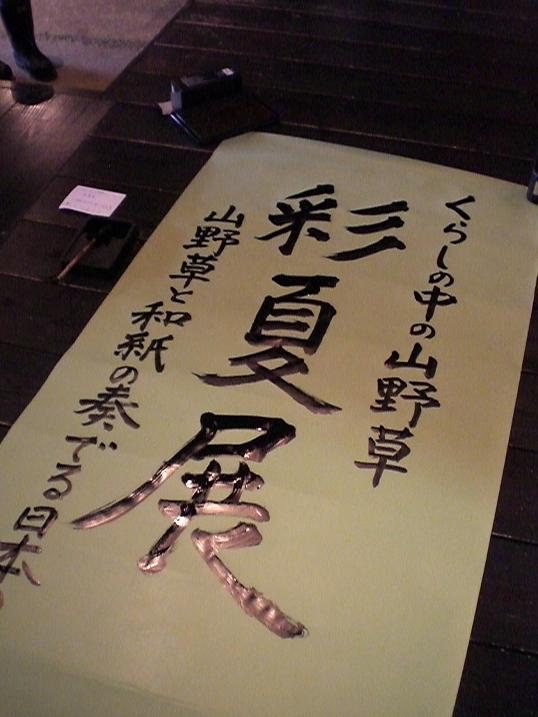 くらしの中の山野草
彩夏展
山野草と和紙の奏でる日本